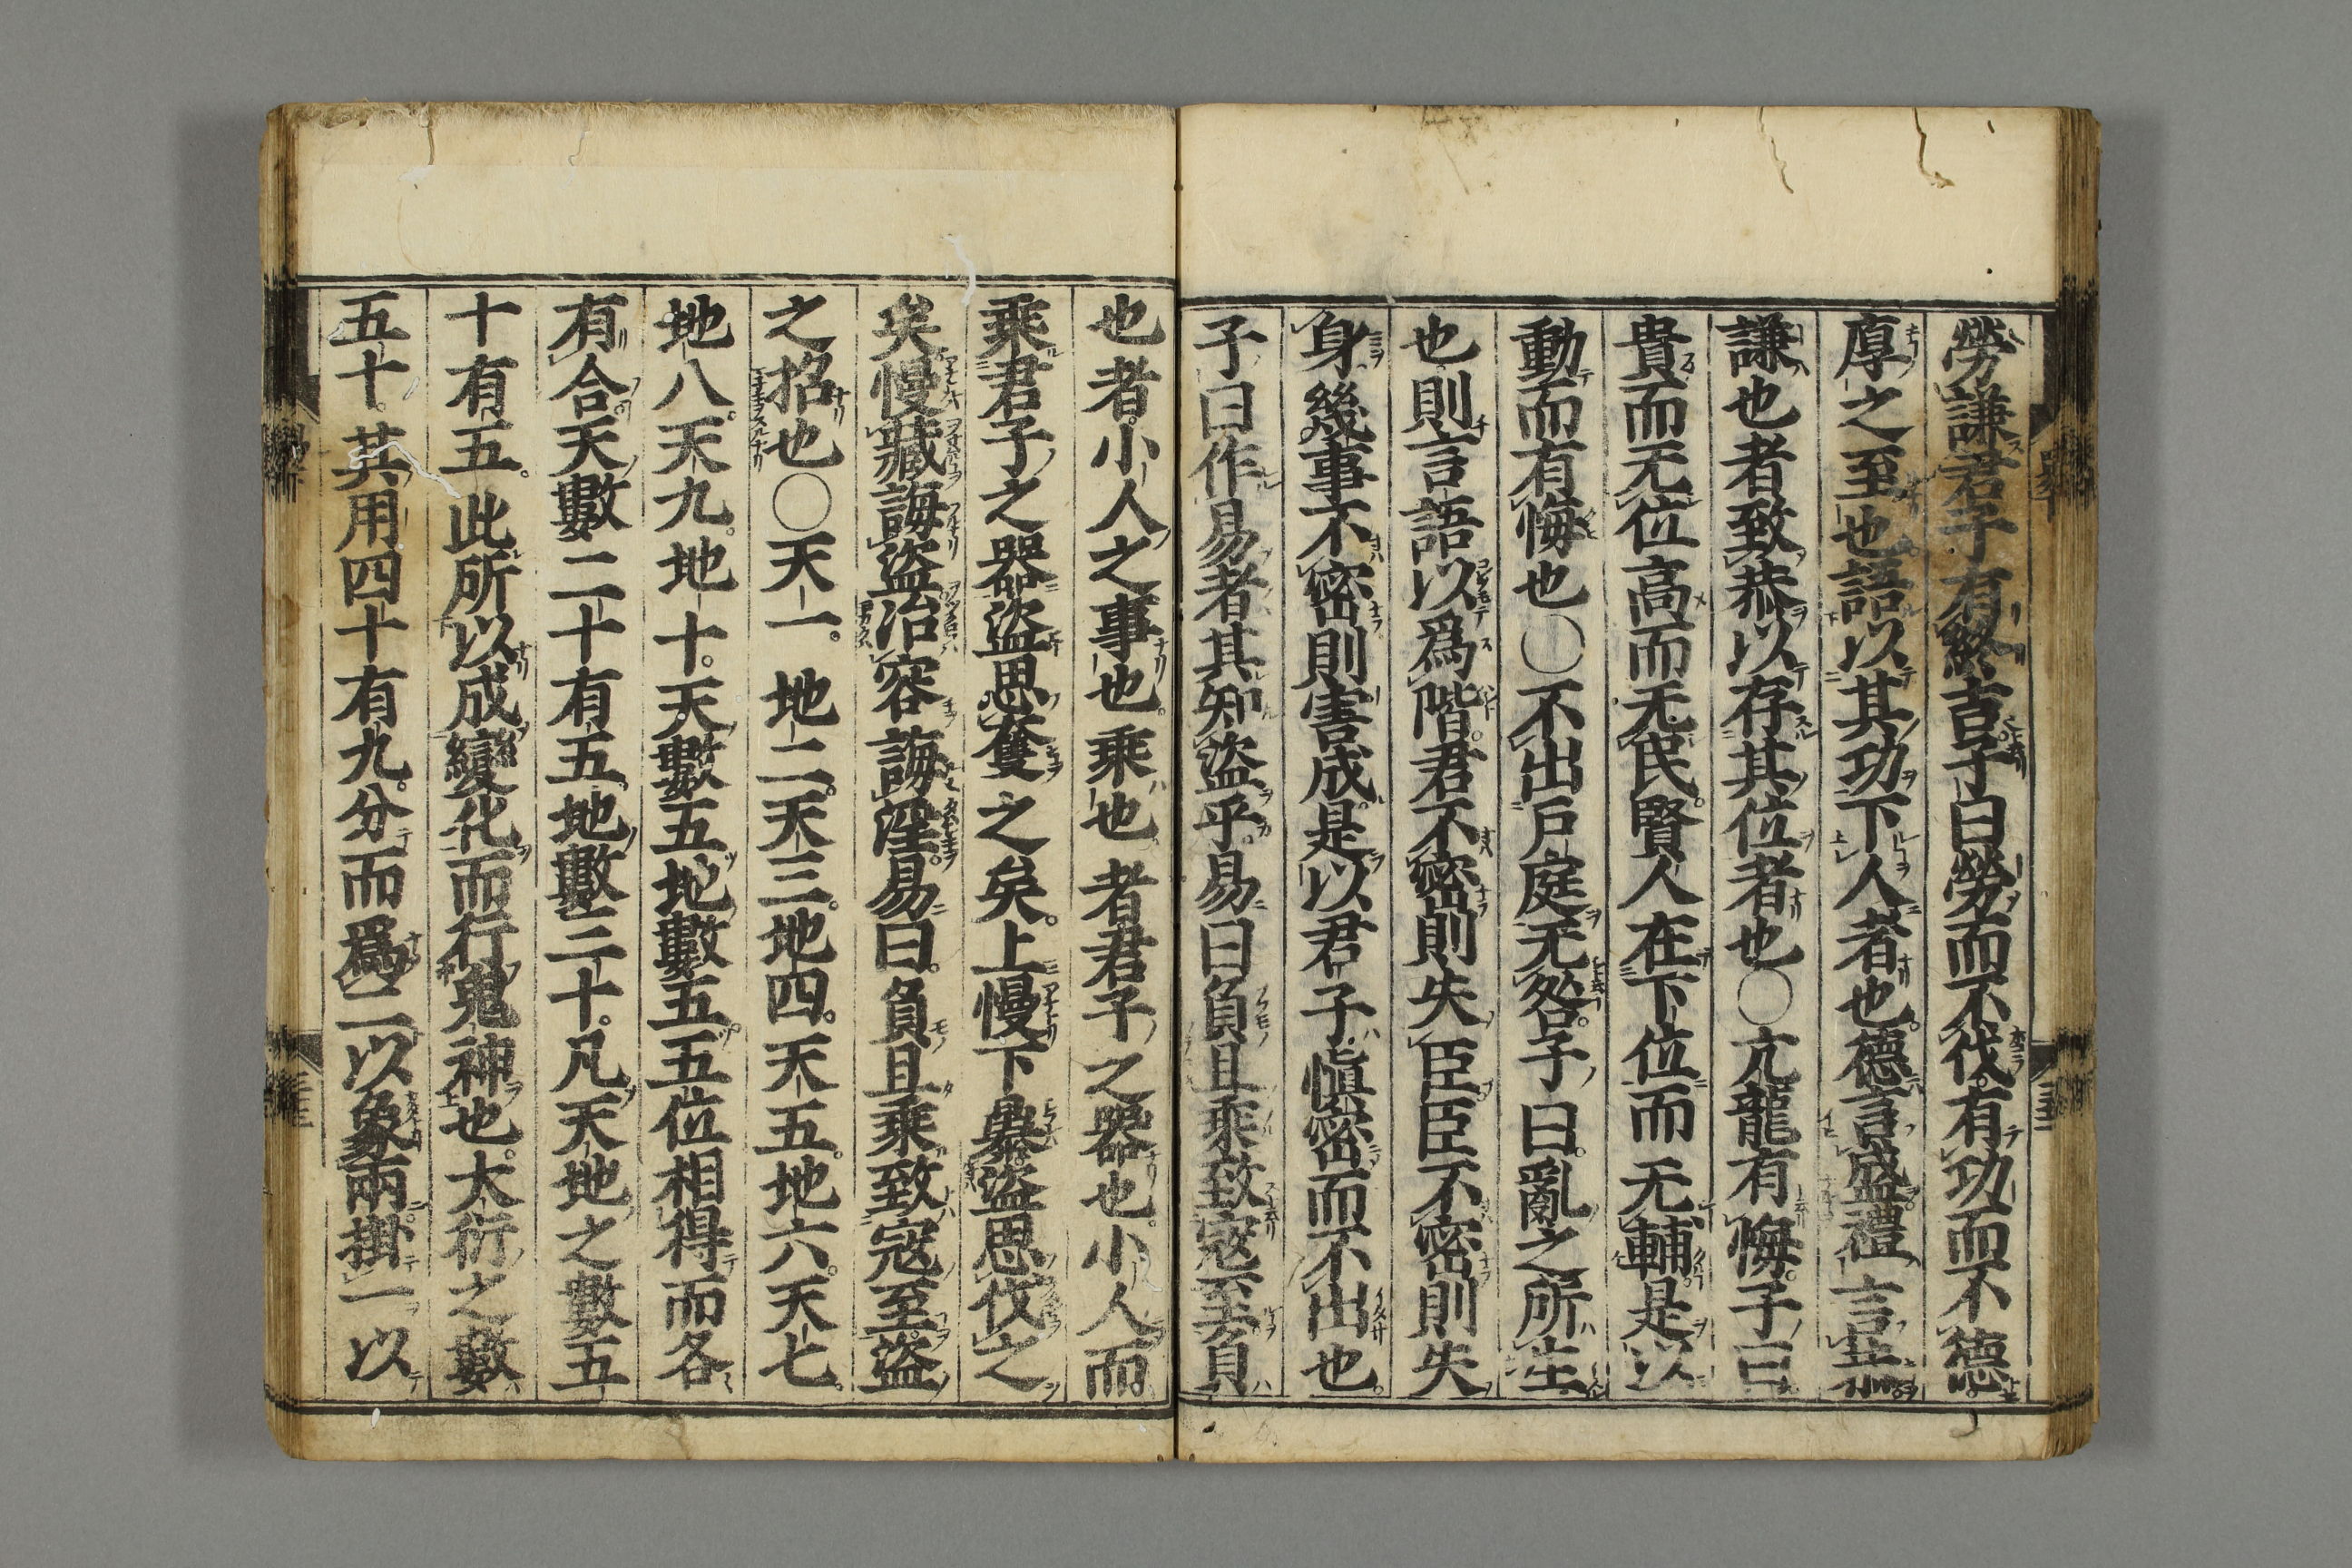 勞謙君子有終吉子曰勞而不伐有功而不德
厚之至也語以其功下人者也德言盛禮言恭
謙也者致恭以存其位者也〇亢龍有悔子曰
貴而无位高而无民賢人在下位而无輔是以
動而有悔也〇不出戸庭无咎子曰亂之所生
也則言語以爲階君不密則失臣臣不密則失
身幾事不密則害成是以君子愼密而不出也
子曰作易者其知盜乎易曰負且乘致寇至負
也者小人之事也乘也者君子之器也小人而
乘君子之器盜思奪之矣上慢下暴盜思伐之
矣慢藏誨盜冶容誨淫易曰負且乘致寇至盜
之招也〇天一地二天三地四天五地六天七
地八天九地十天數五地數五五位相得而各
有合天數二十有五地數三十凡天地之數五
十有五此所以成變化而行鬼神也大衍之數
五十其用四十有九分而爲二以象兩掛一以